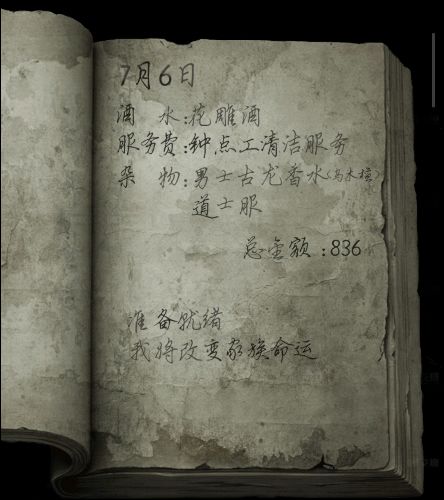 7月6日
酒 水:花雕酒
服务费:钟点工清洁服务
杂 物:男士古龙香水(乌木檀)
道士服
总金额:836
准备就绪
我将改变家族命运